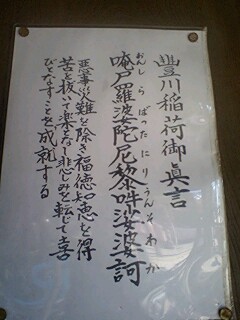 豊川稲荷御眞言
おんしらばったにりうんそわか
唵尸羅婆陀尼黎吽娑婆訶
悪事災難を除き福徳知恵を得
苦を抜いて楽を与し悲しみを転じて喜
びとなすことを成就する